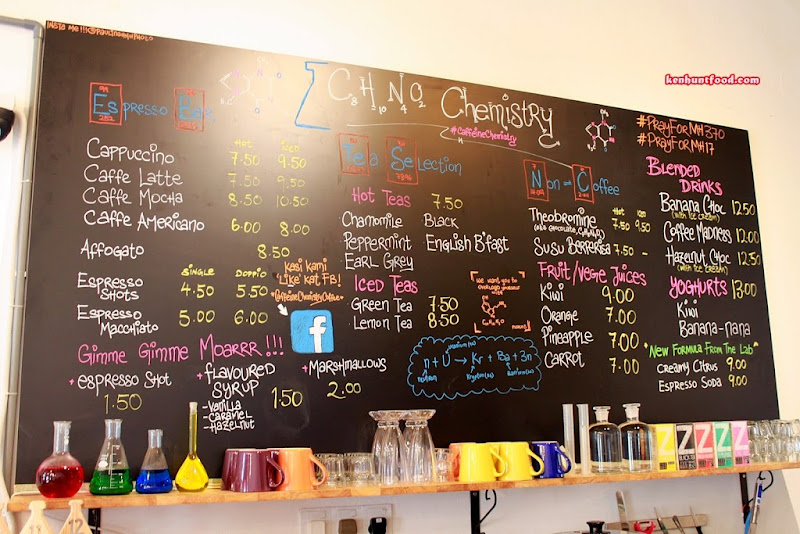 kenhuntfood.com
C8 H10 N4 O2 Chemistry
#CaffeineChemistry
#PrayForMH370
#PrayForMH17
Espresso Bar
Hot Iced
Cappuccino 7.50 9.50
Caffe Latte 7.50 9.50
Caffe Mocha 8.50 10.50
Caffe Americano 6.00 8.00
Affogato 8.50
Single Doppio
Espresso Shots 4.50 5.50
Espresso Macchiato 5.00 6.00
Kasi kami
'Like' kat FB!
f
Gimme Gimme Moarrr!!!
+ espresso shot 1.50
+ flavoured syrup 1.50
- Vanilla
- Caramel
- Hazelnut
+ Marshmallows 2.00
Tea Selection
Hot Teas 7.50
Chamomile Black
Peppermint English B'fast
Earl Grey
Iced Teas
Green Tea 7.50
Lemon Tea 8.50
n + U → Kr + Ba + 3n
Non-Coffee
Hot Iced
Theobromine 7.50 9.50
Susu Berperisa 7.50 -
Fruit/Vegie Juices
Kiwi 9.00
Orange 7.00
Pineapple 7.00
Carrot 7.00
Blended Drinks
Banana Choc 12.50
(with ice cream)
Coffee Madness 12.00
Hazelnut Choc 12.50
(with ice cream)
Yoghurts 13.00
Kiwi
Banana-nana
"New Formula From The Lab"
Creamy Citrus 9.00
Espresso Soda 9.00
Z Z Z Z Z